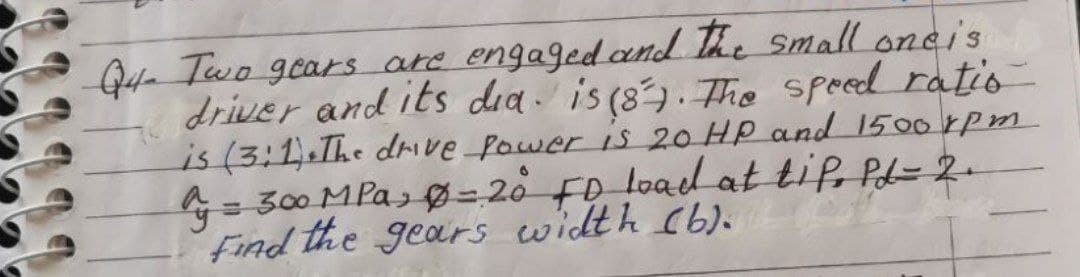 Q4- Two gears are engaged and the small one is
driver and its dia. is (8"). The speed ratio
is (3:1). The drive power is 20 HP and 1500 rpm
σy = 300 MPa, Ø = 20° FD load at tip. Pd = 2.
Find the gears width (b).